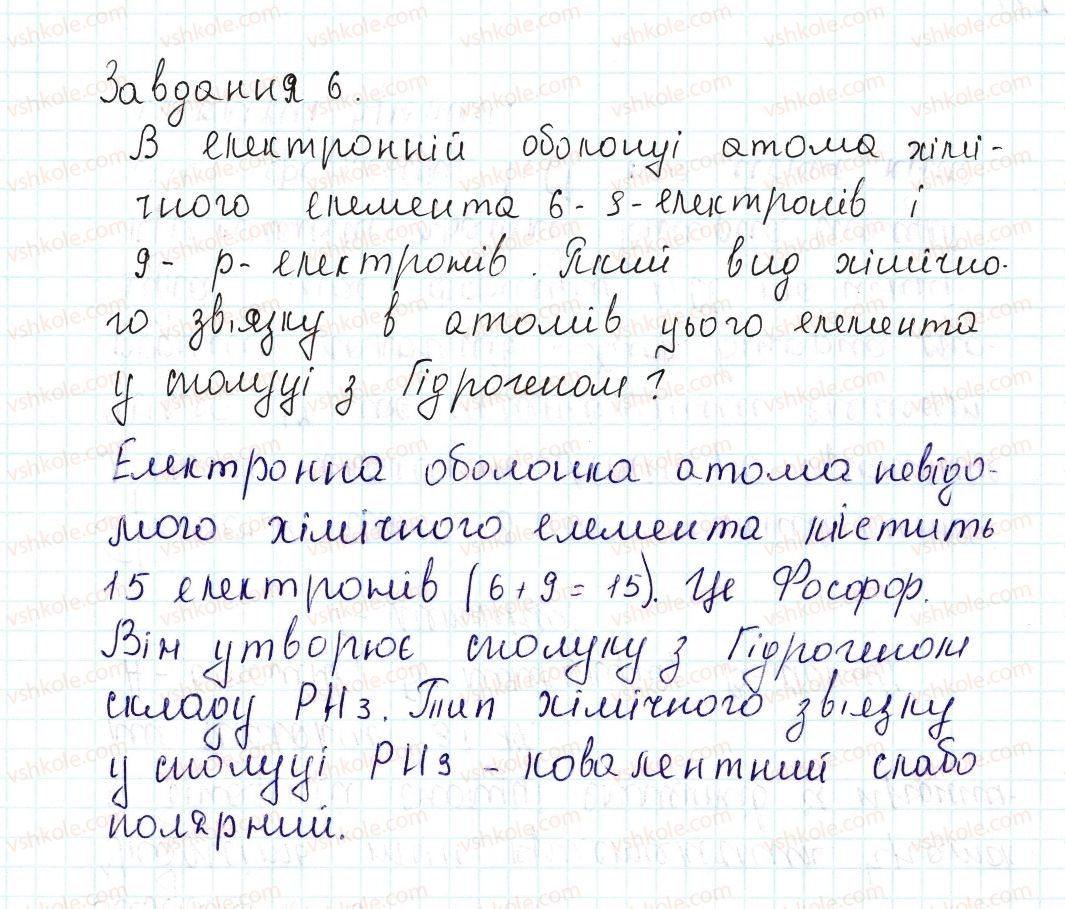 Завдання 6.
В електронній оболонці атома хімі-
чного елемента 6 - s - електронів і
9 - p - електронів. Який вид хімічно-
го зв'язку в атомів цього елемента
у сполуці з Гідрогеном?
Електронна оболонка атома невідо-
мого хімічного елемента містить
15 електронів (6 + 9 = 15). Це Фосфор.
Він утворює сполуку з Гідрогеном
складу PH3. Тип хімічного зв'язку
у сполуці PH3 - ковалентний слабо
полярний.